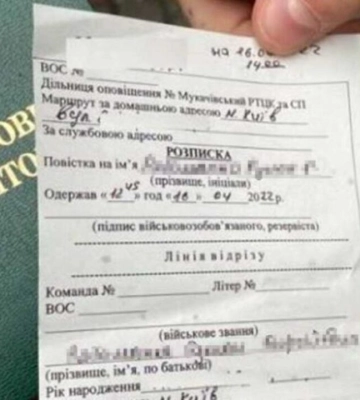 на 16.04
14.00
ВОС №
Дільниця оповіщення № Мукачівський РТЦК та СП
Маршрут за домашньою адресою м. Київ
Вул.
За службовою адресою
РОЗПИСКА
Повістка на ім'я
(прізвище, ініціали)
Одержав «12 45» год «16» 04 2022р.
(підпис військовозобов'язаного, резервіста)
Лінія відрізу
Команда № Літер №
ВОС
(військове звання)
(прізвище, ім'я, по батькові)
Рік народження
м. Київ